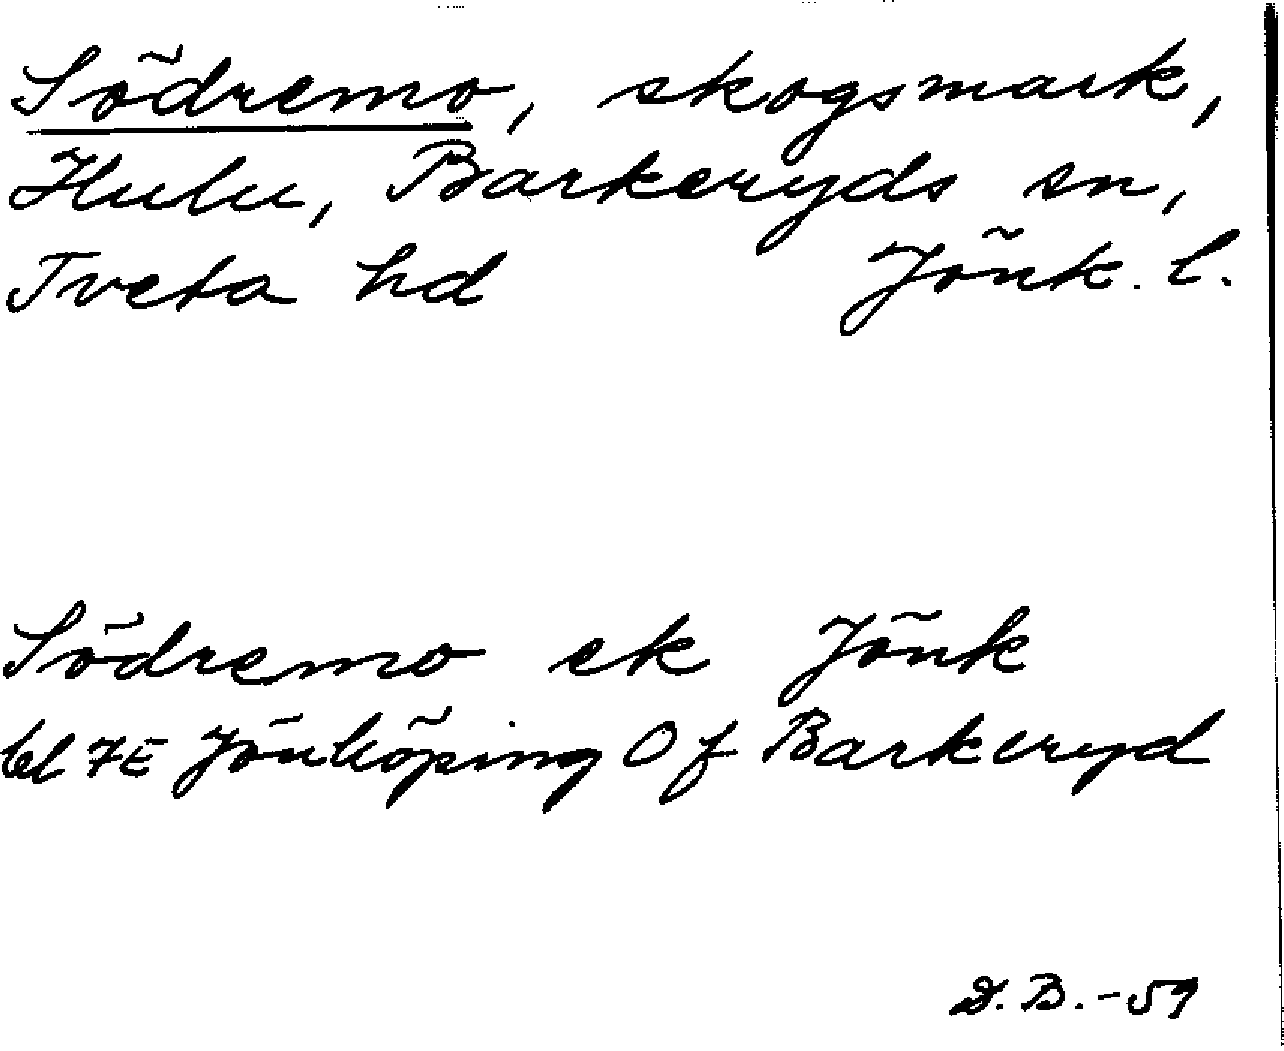 Södremo, skogsmark,
Hulu, Barkeryds sn,
Tveta hd Jönk. l.
Södremo ek Jönk
bl 7E Jönköping Of Barkeryd
D.B. -59